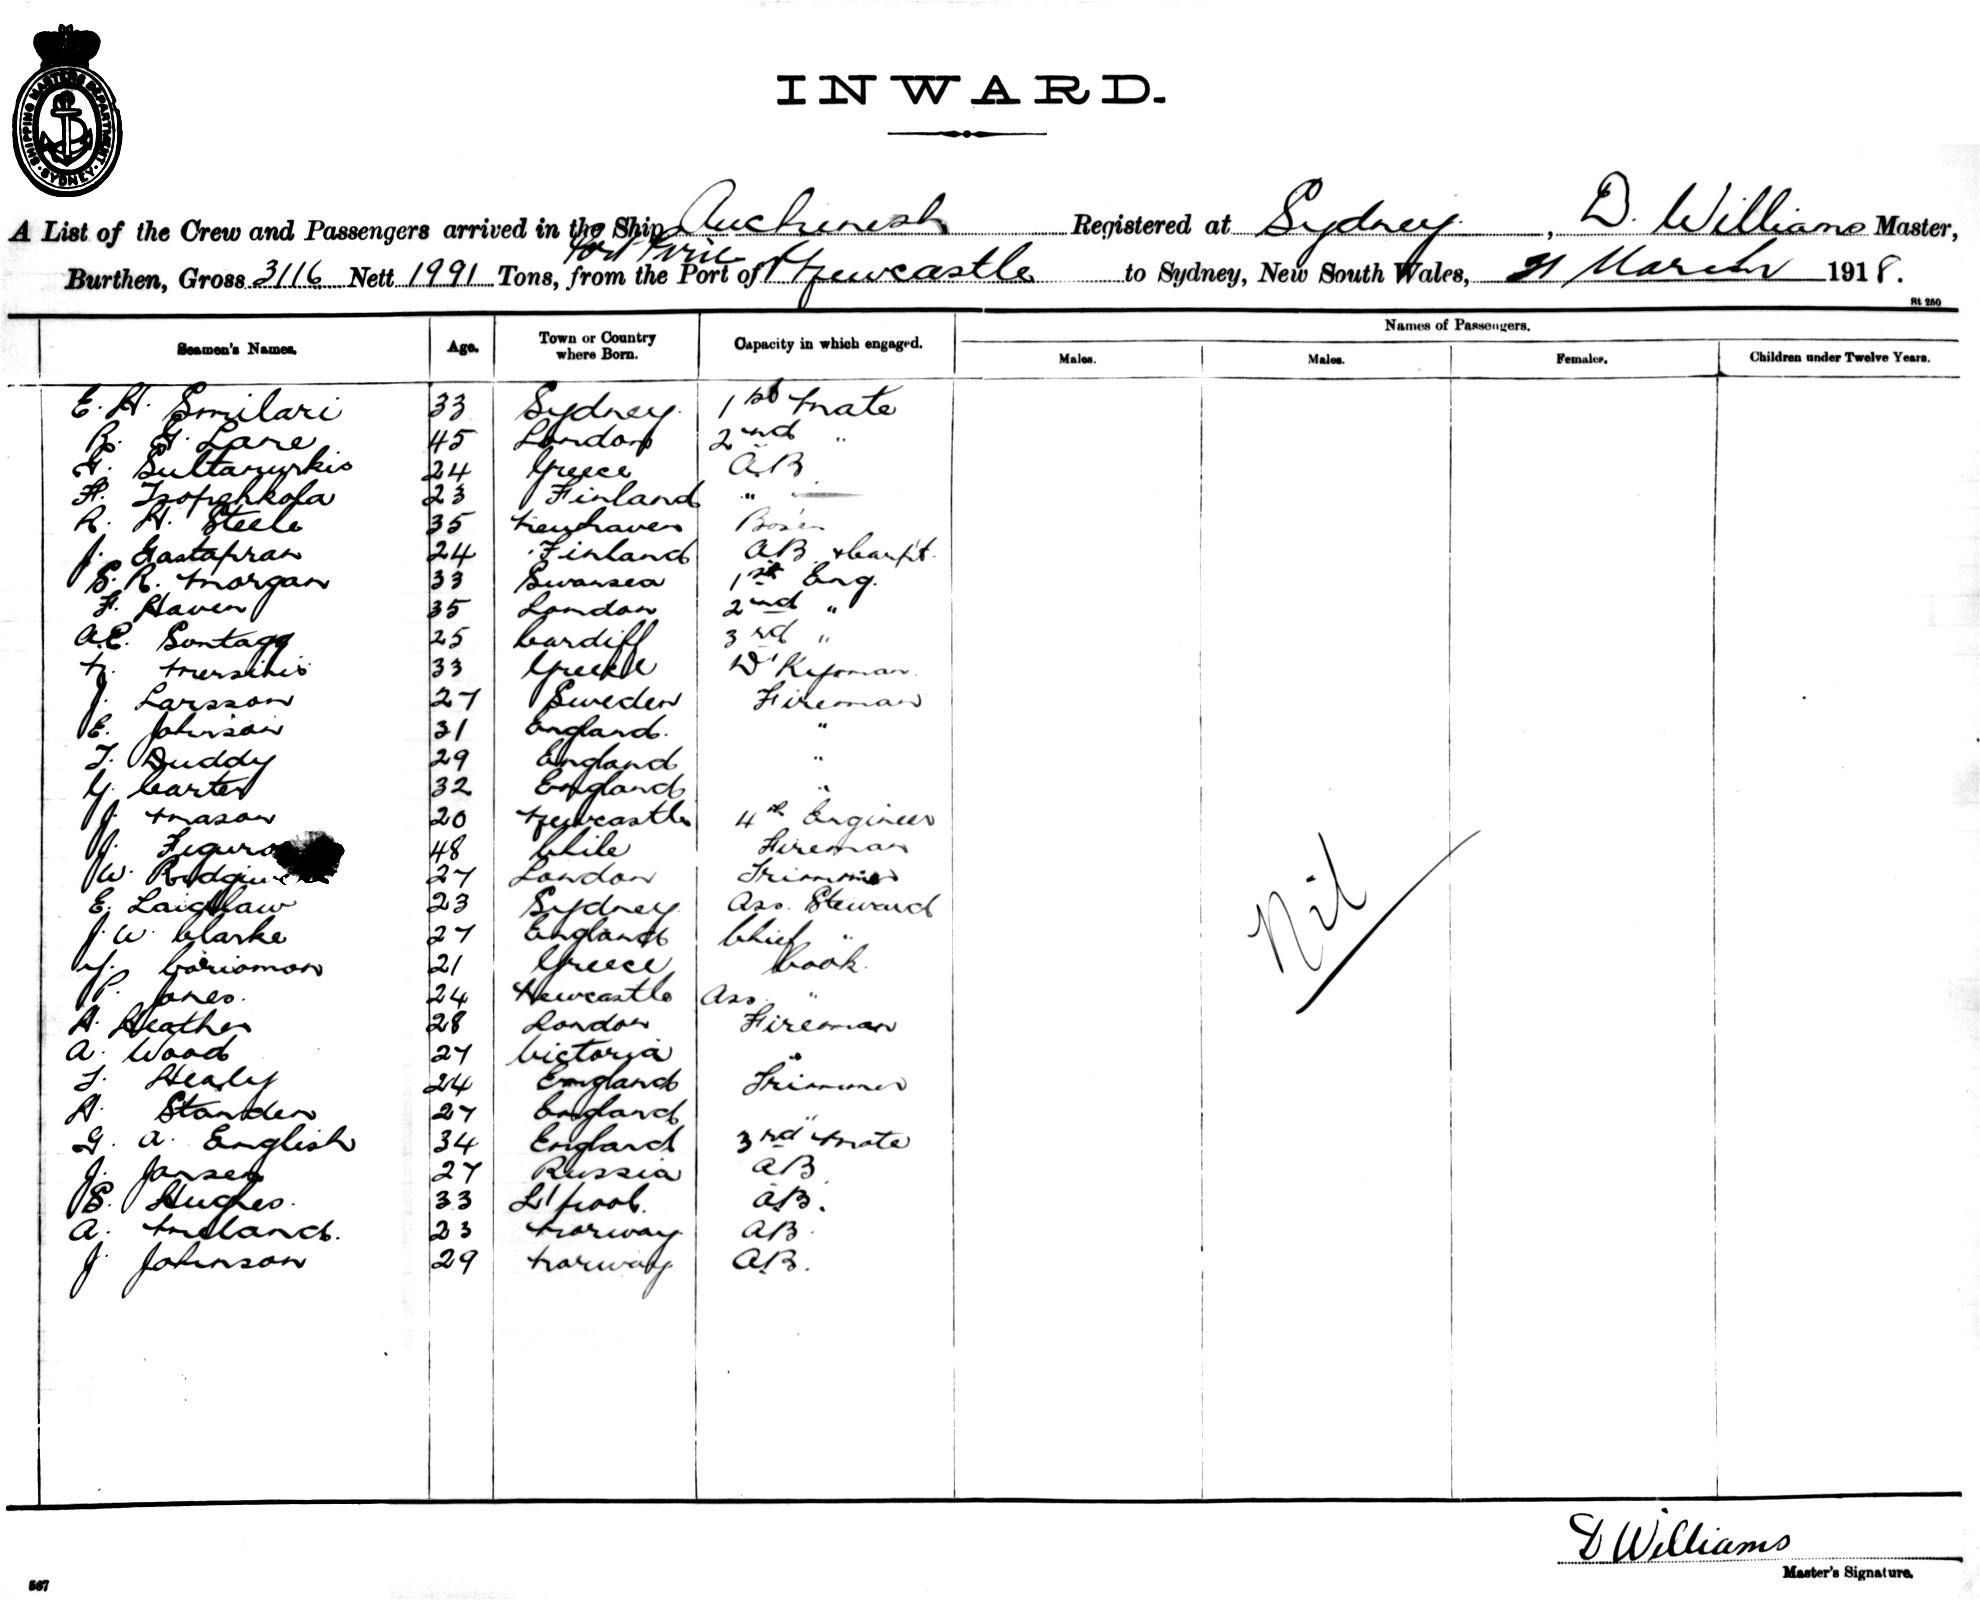 SHIPPING MASTERS DEPARTMENT
SYDNEY
INWARD.
A List of the Crew and Passengers arrived in the Ship Auchinish Registered at Sydney, D. Williams Master,
Port Pirie
Burthen, Gross 3116 Nett 1991 Tons, from the Port of Newcastle to Sydney, New South Wales, 21 March 1918.
St 250
Names of Passengers.
Seamen's Names. Age. Town or Country where Born. Capacity in which engaged. Males. Males. Females. Children under Twelve Years.
E. H. Smilari 33 Sydney 1st Mate
R. G. Lane 45 London 2nd "
G. 24 Greece AB
F. 23 Finland " "
R. H. Steele 35 Newhaven Bos'n
J. Gastafran 24 Finland AB & Carp't.
S. R. Morgan 33 Swansea 1st Eng.
F. Haven 35 London 2nd "
A.E. Sontagg 25 Cardiff 3rd "
N. Mersinis 33 Greece D'Kyman
J. Larsson 27 Sweden Fireman
E. Johnson 31 England. "
T. Duddy 29 England "
G. Carter 32 England "
J. Mason 20 Newcastle 4th Engineer
J. 48 Chile Fireman
W. 27 London Trimmer
E. Laidlaw 23 Sydney Ass. Steward
J. W. Clarke 27 England Chief "
21 Greece Cook.
P. Jones. 24 Newcastle Ass. "
H. Heather 28 London Fireman
A. Wood 27 Victoria "
T. Healy 24 England Trimmer
H. Standen 27 England "
G. A. English 34 England 3rd Mate
J. Jansen 27 Russia AB
S. Hughes. 33 L'pool. AB.
A. Meland. 23 Norway AB.
J. Johnson 29 Norway AB.
Nil
D Williams
Master's Signature.
567